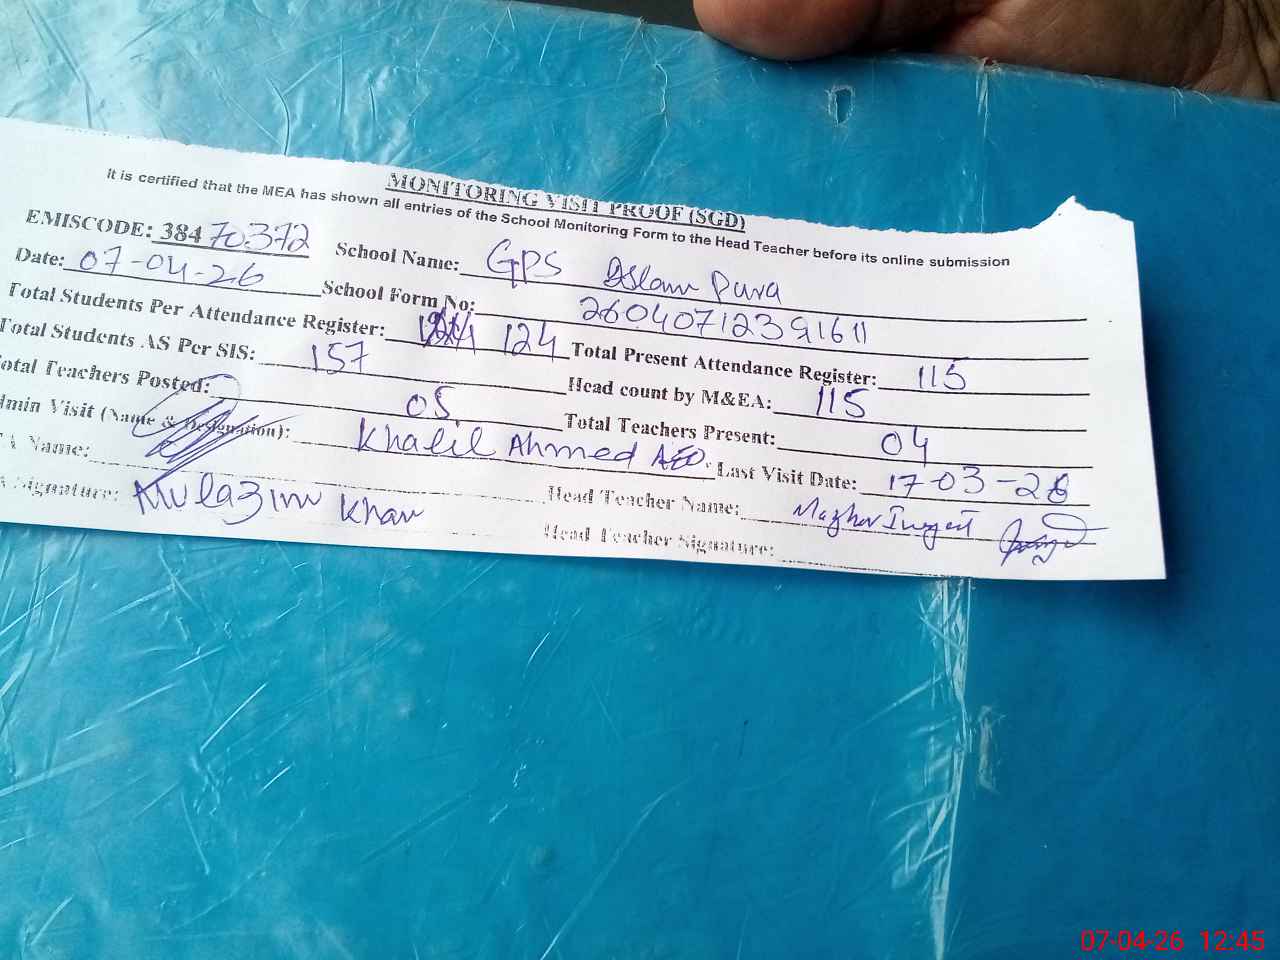 MONITORING VISIT PROOF (SGD)
It is certified that the MEA has shown all entries of the School Monitoring Form to the Head Teacher before its online submission
EMISCODE: 38470372 School Name: GPS Islam Pura
Date: 07-04-26 School Form No: 26040712391611
Total Students Per Attendance Register: 124 Total Present Attendance Register: 115
Total Students AS Per SIS: 157 Head count by M&EA: 115
otal Teachers Posted: 05 Total Teachers Present: 04
dmin Visit (Name & Designation): Khalil Ahmed AEO. Last Visit Date: 17-03-26
A Name: Head Teacher Name: Mazhar
Signature: Mulazim Khan Head Teacher Signature:
07-04-26 12:45